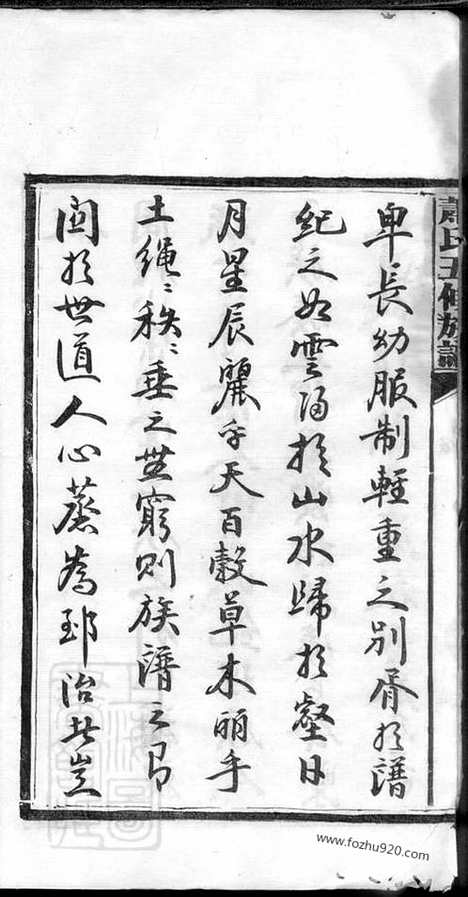 蕭氏五修族譜
卑長幼服制輕重之別胥於譜
紀之如雲於山水歸於壑日
月星辰麗乎天百穀草木丽乎
土繩〻秩〻垂之無窮則族譜之有
関於世道人心蒸為郅治者豈
www.fozhu920.com